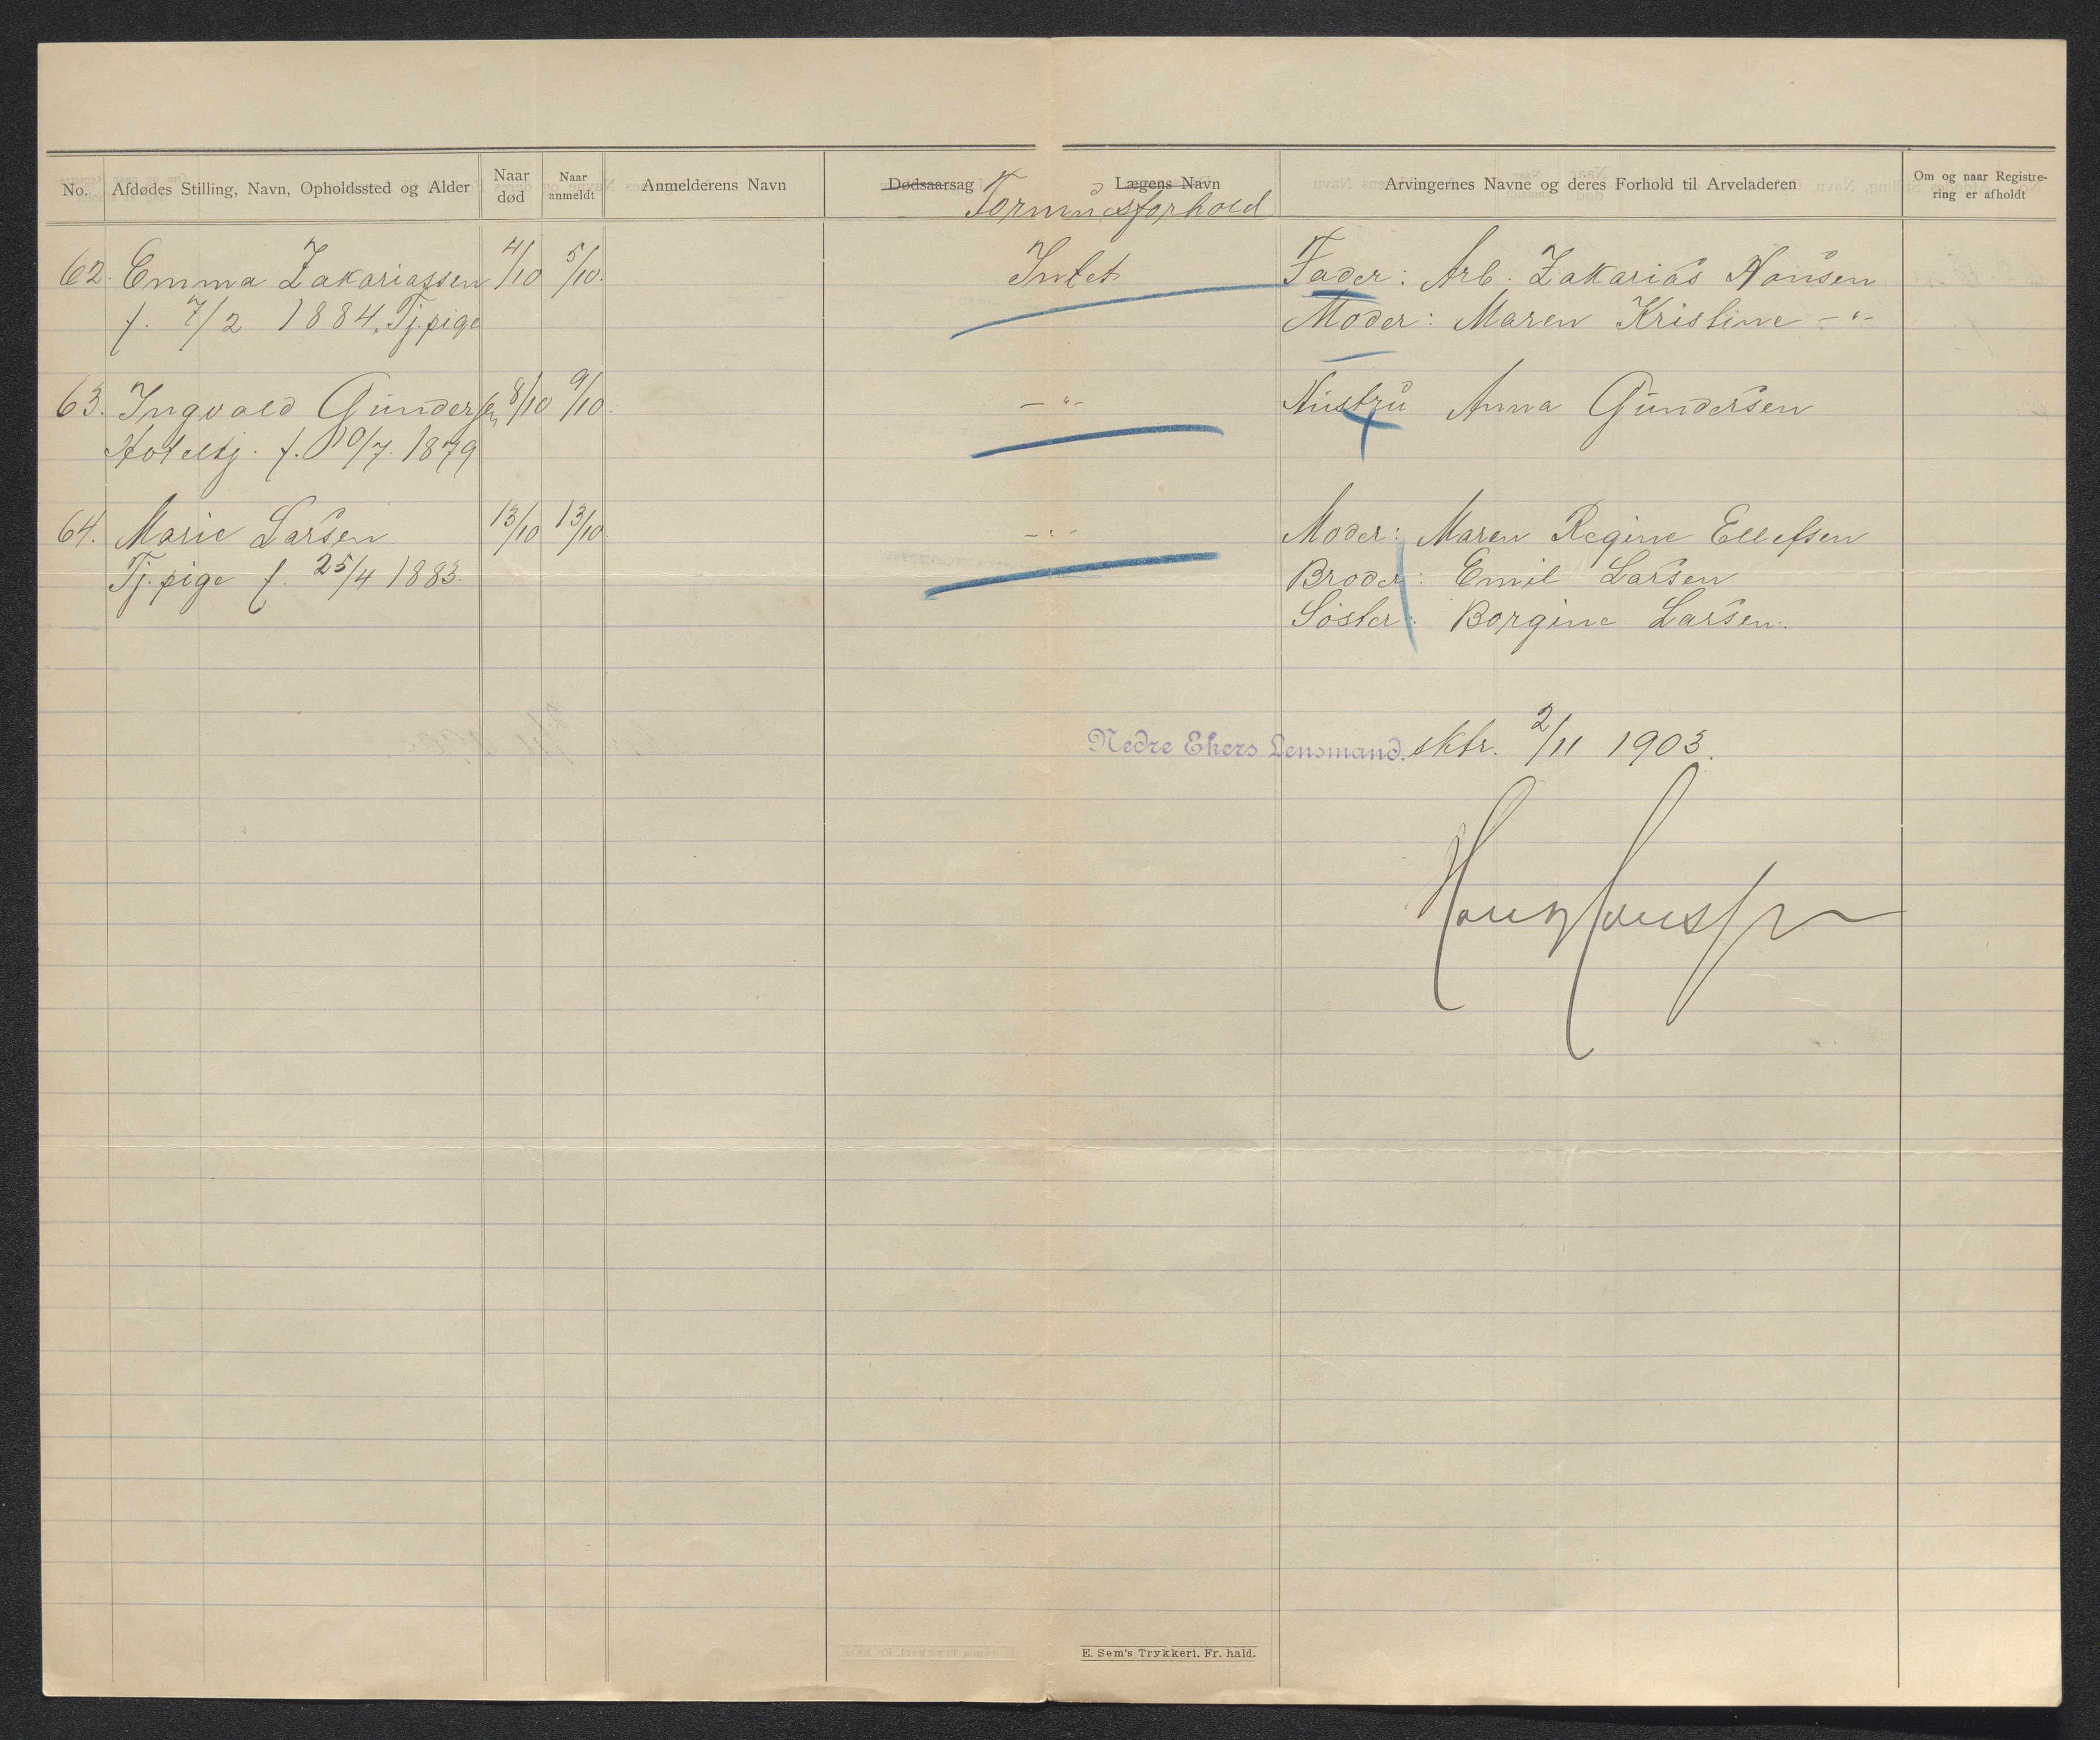 No. Afdødes Stilling, Navn, Opholdssted og Alder Naar død Naar anmeldt Anmelderens Navn Dødsaarsag Lægens Navn Arvingernes Navne og deres Forhold til Arveladeren Om og naar Registrering er afholdt
Formuesforhold
62. Emma Zakariassen 4/10 5/10. Intet Fader: Arb. Zakarias Hansen
f. 7/2 1884, Tj.pige Moder: Maren Kristine -"-
63. Ingvald Gundersen 8/10 9/10. -"- Hustru Anna Gundersen
Hotelbj. f. 10/7. 1879
64. Marie Larsen 13/10 13/10 -"- Moder: Maren Regine Ellefsen
Tj.pige f. 25/4 1883. Broder: Emil Larsen
Søster: Borgine Larsen.
Nedre Ekers Lensmand.sktr. 2/11 1903.
Hans Hanssen
E. Sem's Trykkeri. Fr. hald.